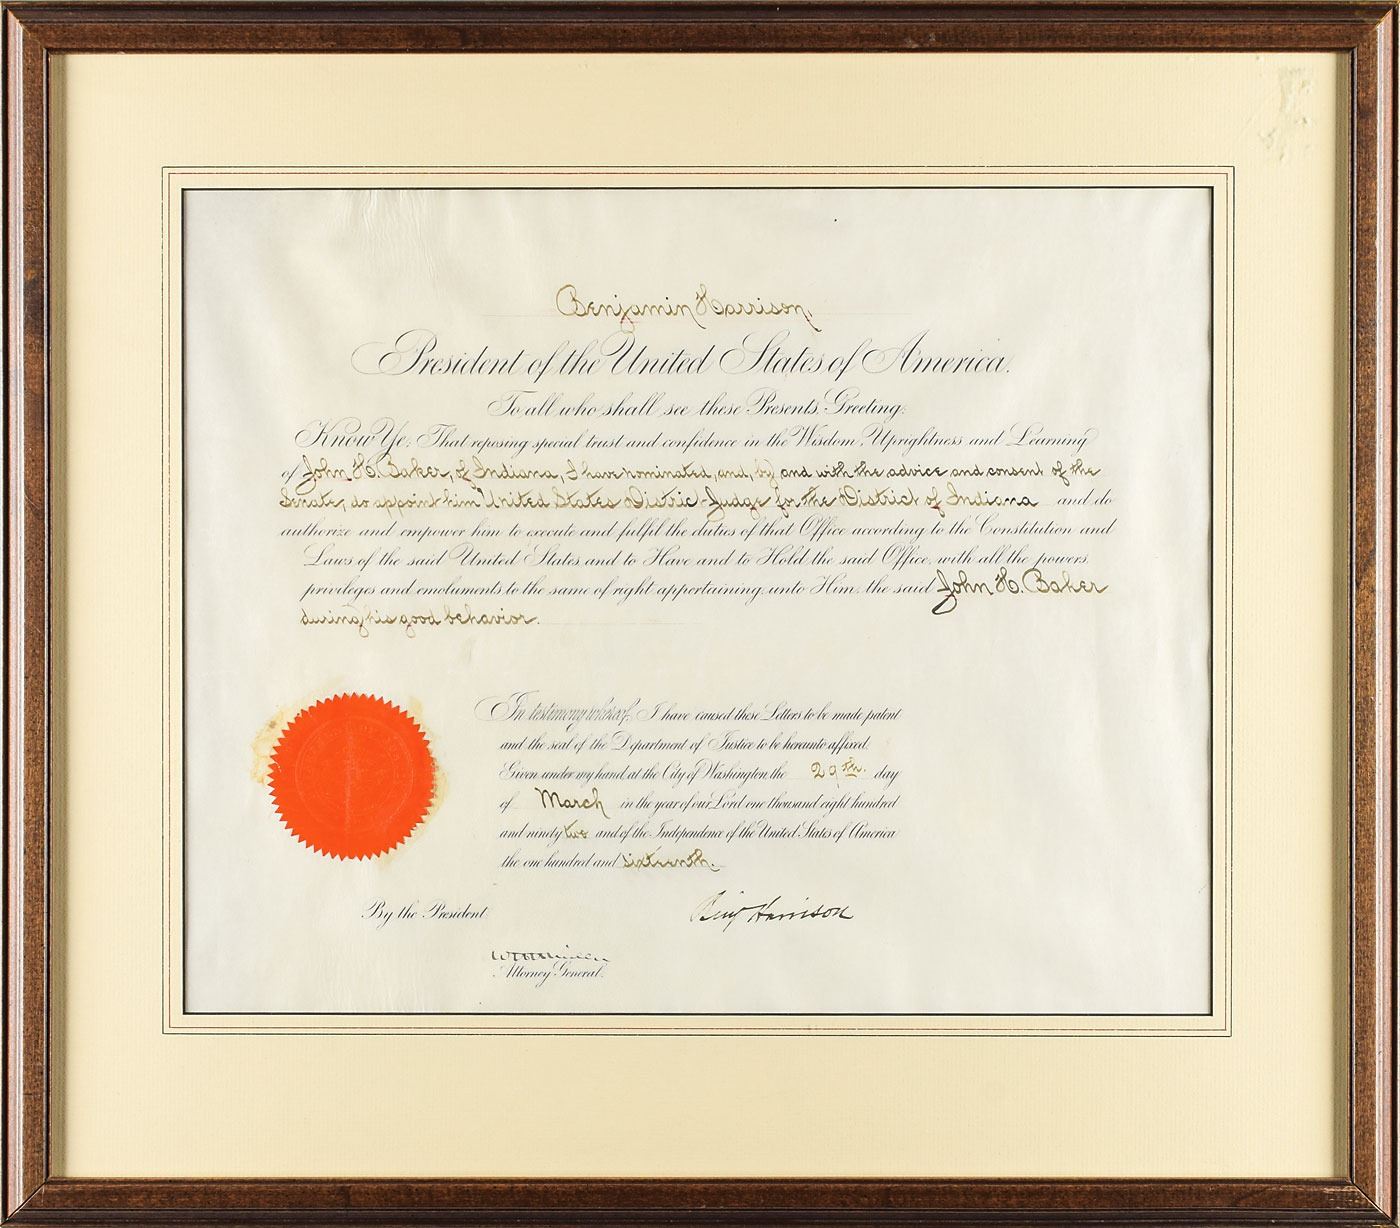 Benjamin Harrison,
President of the United States of America.
To all who shall see these Presents, Greeting:
Know Ye; That reposing special trust and confidence in the Wisdom, Uprightness and Learning
of John H. Baker, of Indiana, I have nominated, and, by and with the advice and consent of the
Senate, do appoint him United States District Judge for the District of Indiana and do
authorize and empower him to execute and fulfil the duties of that Office according to the Constitution and
Laws of the said United States and to Have and to Hold the said Office, with all the powers,
privileges and emoluments to the same of right appertaining, unto Him, the said John H. Baker
during his good behavior.
In testimony whereof, I have caused these Letters to be made patent
and the seal of the Department of Justice to be hereunto affixed.
Given under my hand at the City of Washington the 29th. day
of March in the year of our Lord one thousand eight hundred
and ninety two and of the Independence of the United States of America
the one hundred and sixteenth.
By the President: Benj Harrison
W H H Miller
Attorney General.